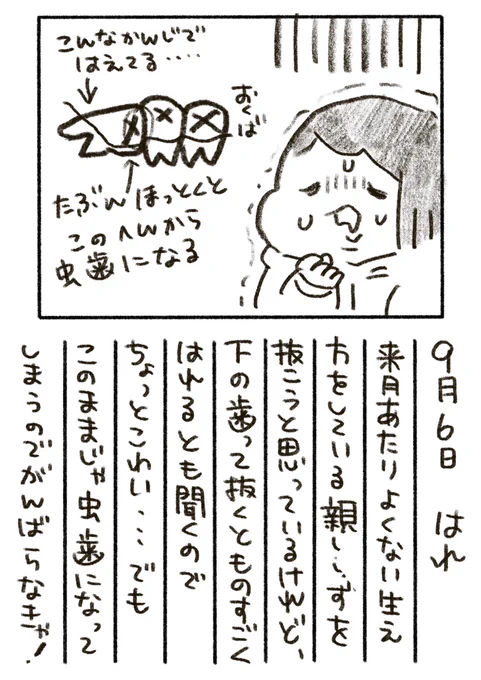 こんなかんじで
はえてる‥‥
おくば
たぶんほっとくと
このへんから
虫歯になる
9月6日 はれ
来月あたりよくない生え
方をしている親しらずを
抜こうと思っているけれど、
下の歯って抜くとものすごく
はれるとも聞くので
ちょっとこわい…でも
このままじゃ虫歯になって
しまうのでがんばらなきゃ!